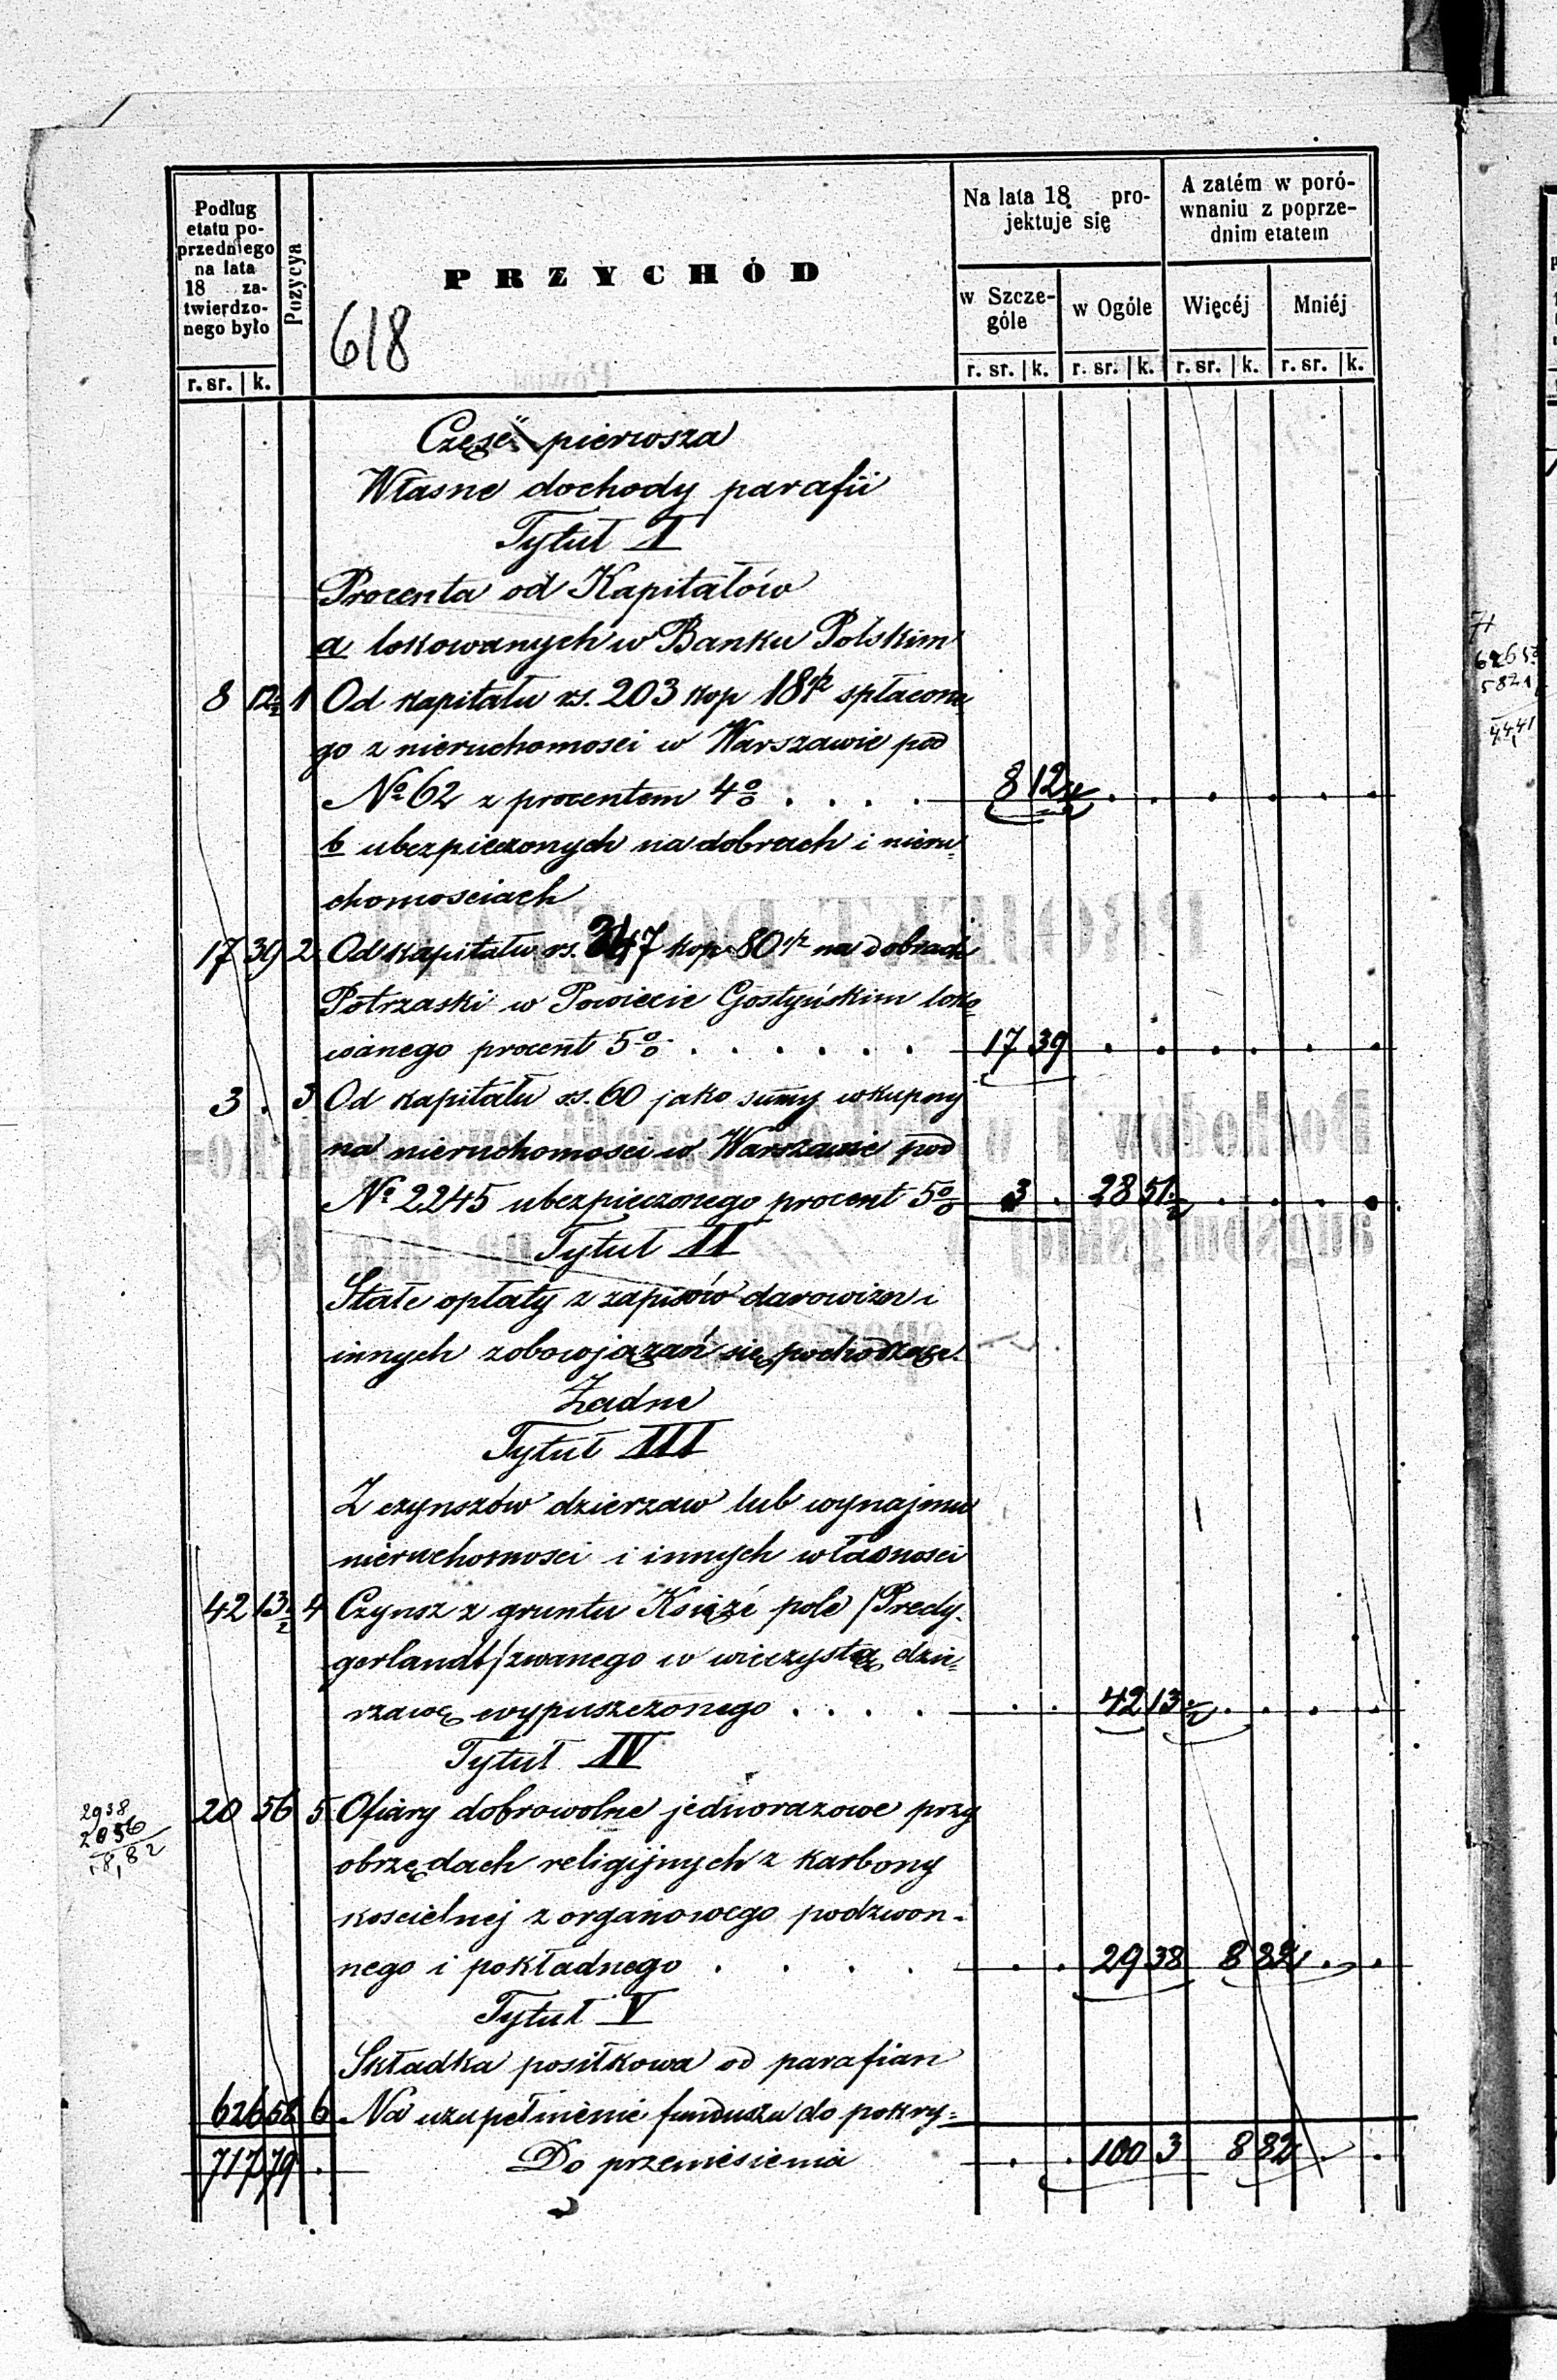 Podług
etatu po-
przedniego
na lata
18 za-
twierdzo-
nego było
r. sr. k.
Pozycya
PRZYCHÓD
618
Na lata 18 pro-
jektuje się
w Szcze-
góle
r. sr. k.
w Ogóle
r. sr. k.
A zatém w poró-
wnaniu z poprze-
dnim etatem
Więcéj
r. sr. k.
Mniéj
r. sr. k.
Część pierwsza
Własne dochody parafii
Tytuł I
Procenta od Kapitałów
a lokowanych w Banku Polskim
8 12½ 1 Od kapitału rs. 203 kop 18½ spłacone-
go z nieruchomosci w Warszawie pod
№ 62 z procentem 4% . . . . 8 12½
b ubezpieczonych na dobrach i nieru-
chomosciach
17 39 2 Od kapitału rs. 347 kop 80½ na dobrach
Potrzaski w Powiecie Gostyńskim loko-
wanego procent 5% . . . . . . 17 39
3 . 3 Od kapitału rs. 60 jako summy wkupny
na nieruchomosci w Warszawie pod
№ 2245 ubezpieczonego procent 5% 3 . 28 51½
Tytuł II
Stałe opłaty z zapisów darowizn i
innych zobowjązań się pochodzące.
Żadne
Tytuł III
Z czynszów dzierzaw lub wynajmu
nieruchomosci i innych własnosci
42 13½ 4 Czynsz z gruntu Książé pole /Predy-
gerlandt/ zwanego w wieczystą dzie-
rzawę wypuszczonego . . . . 42 13½
Tytuł IV
20 56 5 Ofiary dobrowolne jednorazowe przy
obrzędach religijnych z karbony
koscielnej z organowego podzwon-
nego i pokładnego . . . . 29 38 8 82
2938
2056
8,82
Tytuł V
Składka posiłkowa od parafian
626 58 6 Na uzupełnienie funduszu do pokry-
717 79 . Do przeniesienia . . 100 3 8 82